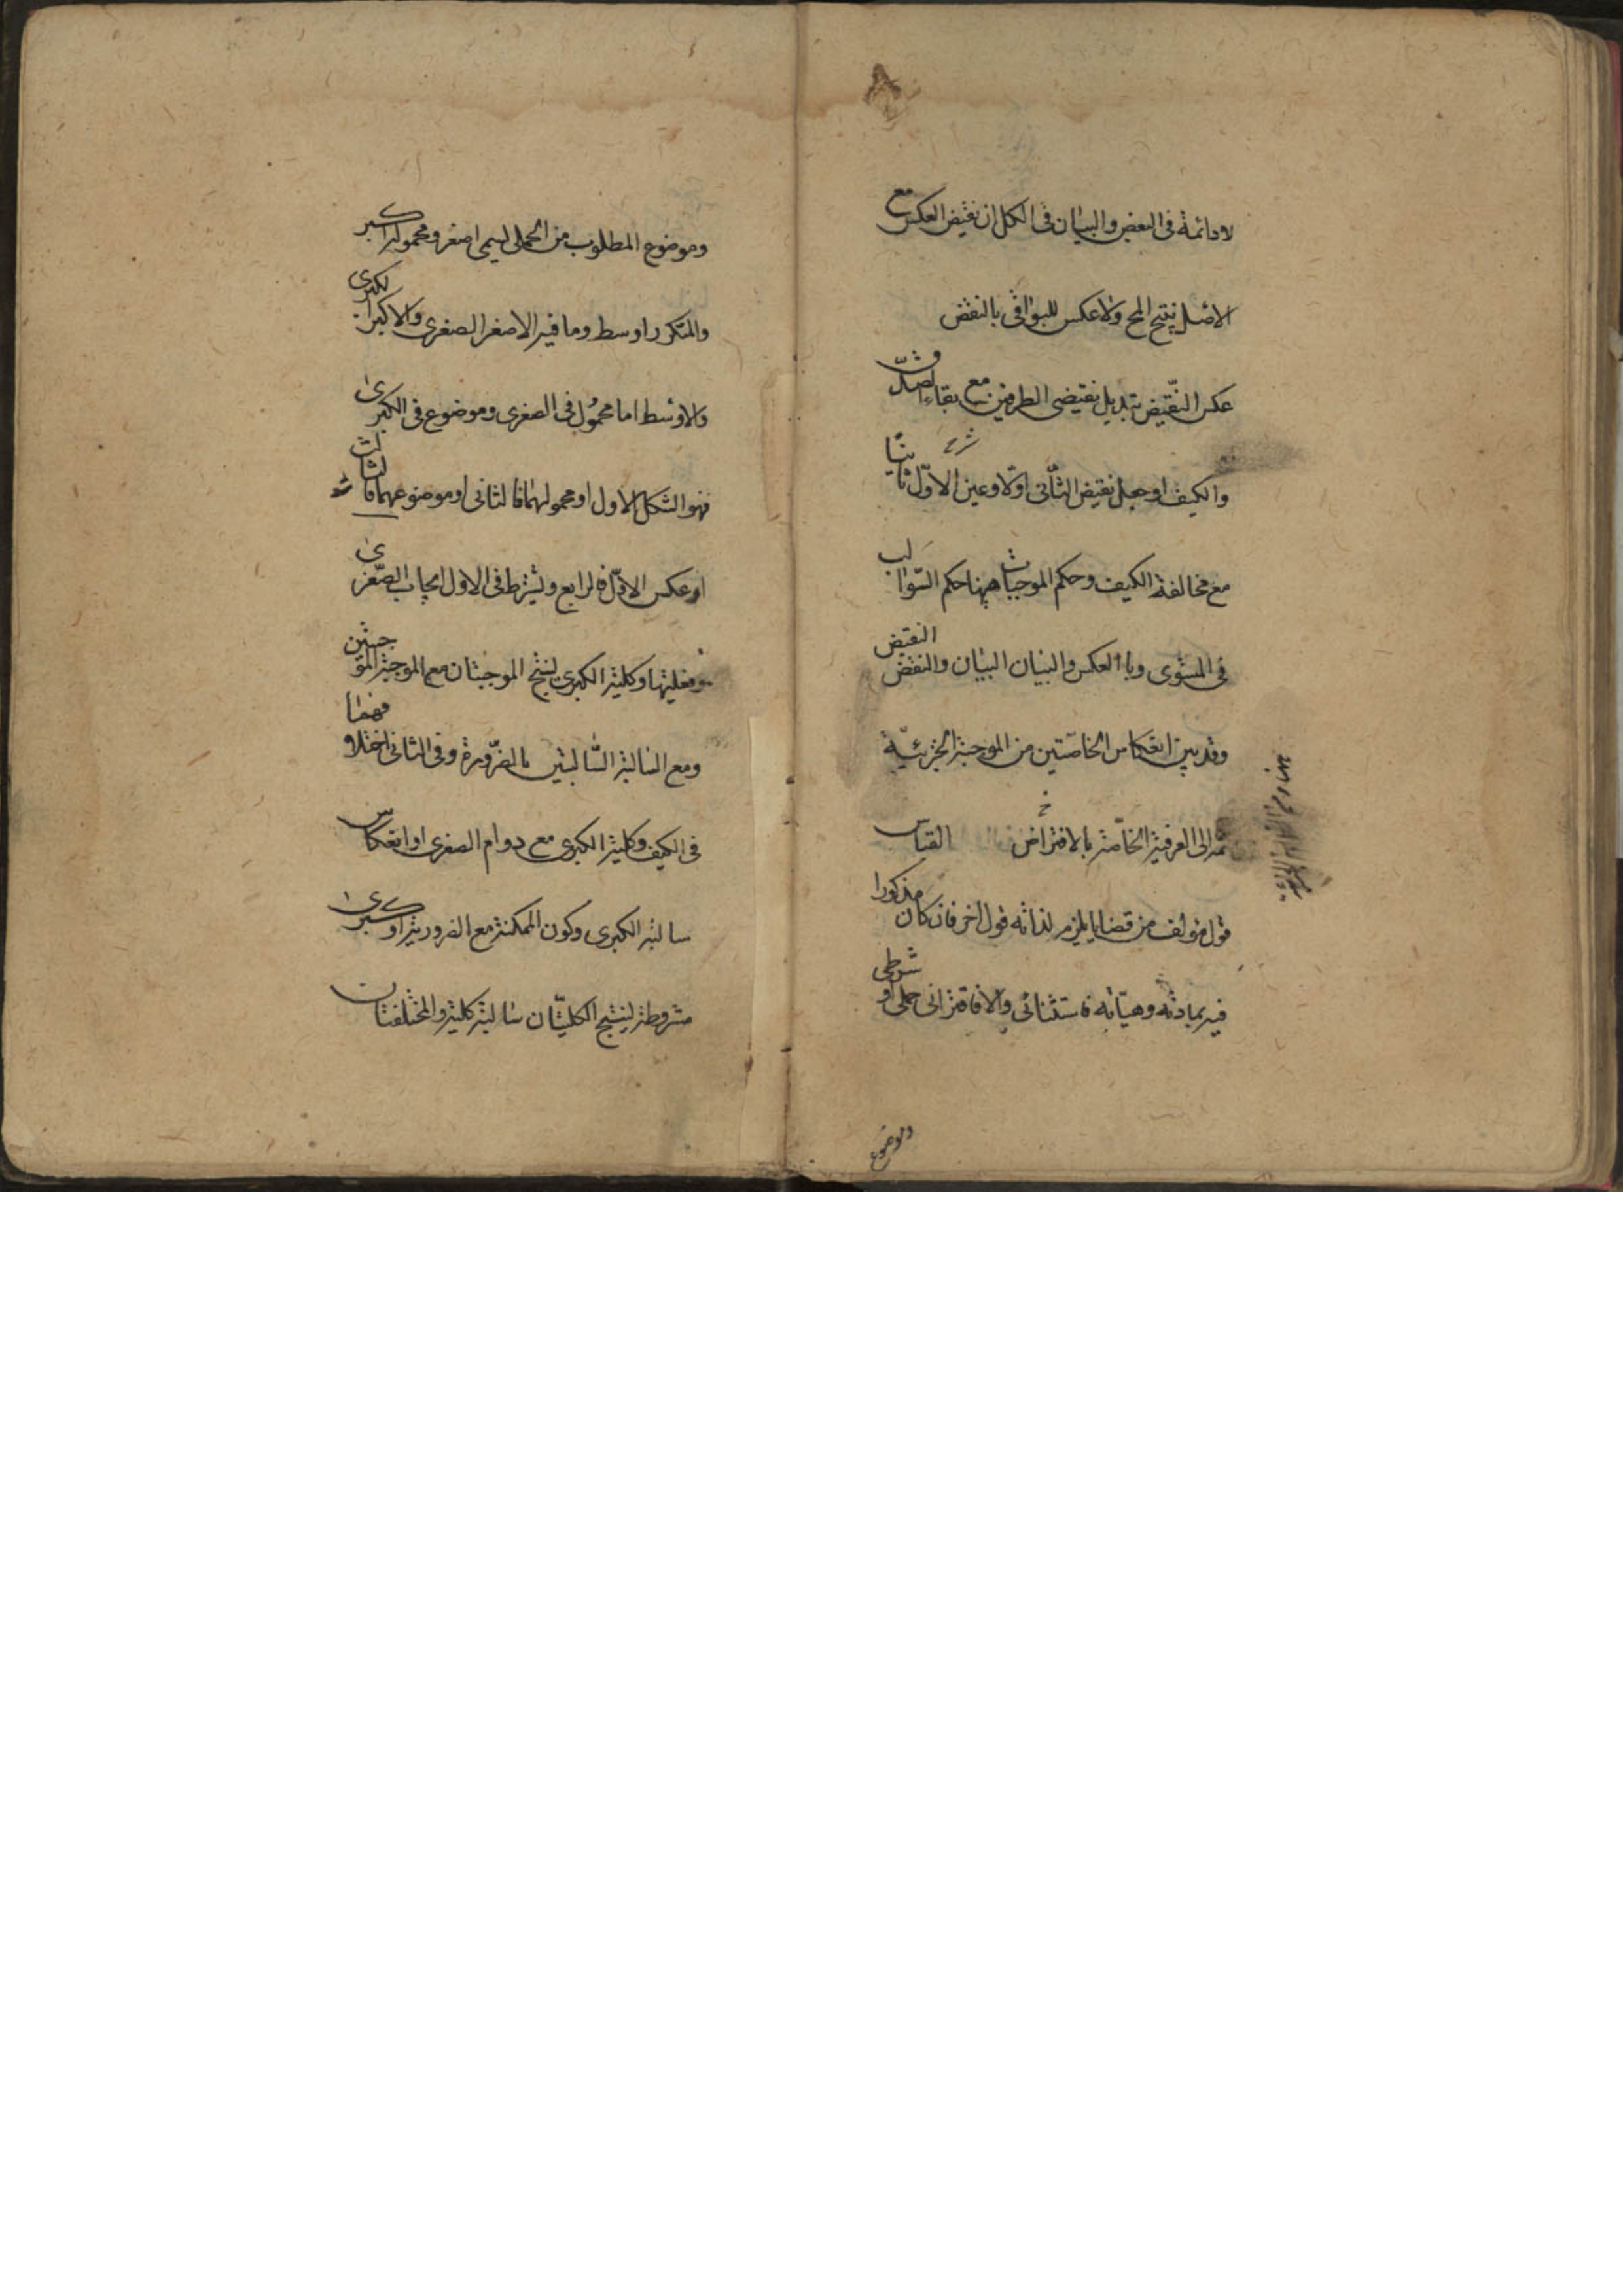 لا دائمة فى البعض والبيان فى الكل ان نقيض العكس مع
الاصل ينتج المح ولا عكس للبواقى بالنقض
عكس النقيض تبديل نقيضى الطرفين مع بقاء الصدق
والكيف او جعل نقيض الثانى اولا وعين الاول ثانيا
مع مخالفة الكيف وحكم الموجبات ههنا حكم السوالب
فى المستوى وبا العكس والبيان البيان والنقض النقيض
وقد بين انعكاس الخاصتين من الموجبة الجزئية
ثمه الى العرفية الخاصة بالافتراض القياس
قول مؤلف من قضايا يلزم لذاته قول اخر فان كان مذكورا
فيه بمادته وهيأته فاستثنائى والا فاقترانى حملى او شرطى
وموضوع
وموضوع المطلوب من الحملى يسمى اصغر ومحموله اكبر
والمتكرر اوسط وما فيه الاصغر الصغرى والاكبر الكبرى
والاوسط اما محمول فى الصغرى وموضوع فى الكبرى
فهو الشكل الاول او محمولهما فالثانى او موضوعهما فالثالث
او عكس الاول فالرابع ويشترط فى الاول ايجاب الصغرى
وفعليتها وكلية الكبرى لينتج الموجبتان مع الموجبة الموجبتين
ومع السالبة السالبتين بالضرورة وفى الثانى اختلافهما
فى الكيف وكلية الكبرى مع دوام الصغرى او انعكاس
سالبة الكبرى وكون الممكنة مع الضرورية او كبرى
مشروطة لينتج الكليتان سالبة كلية والمختلفتان